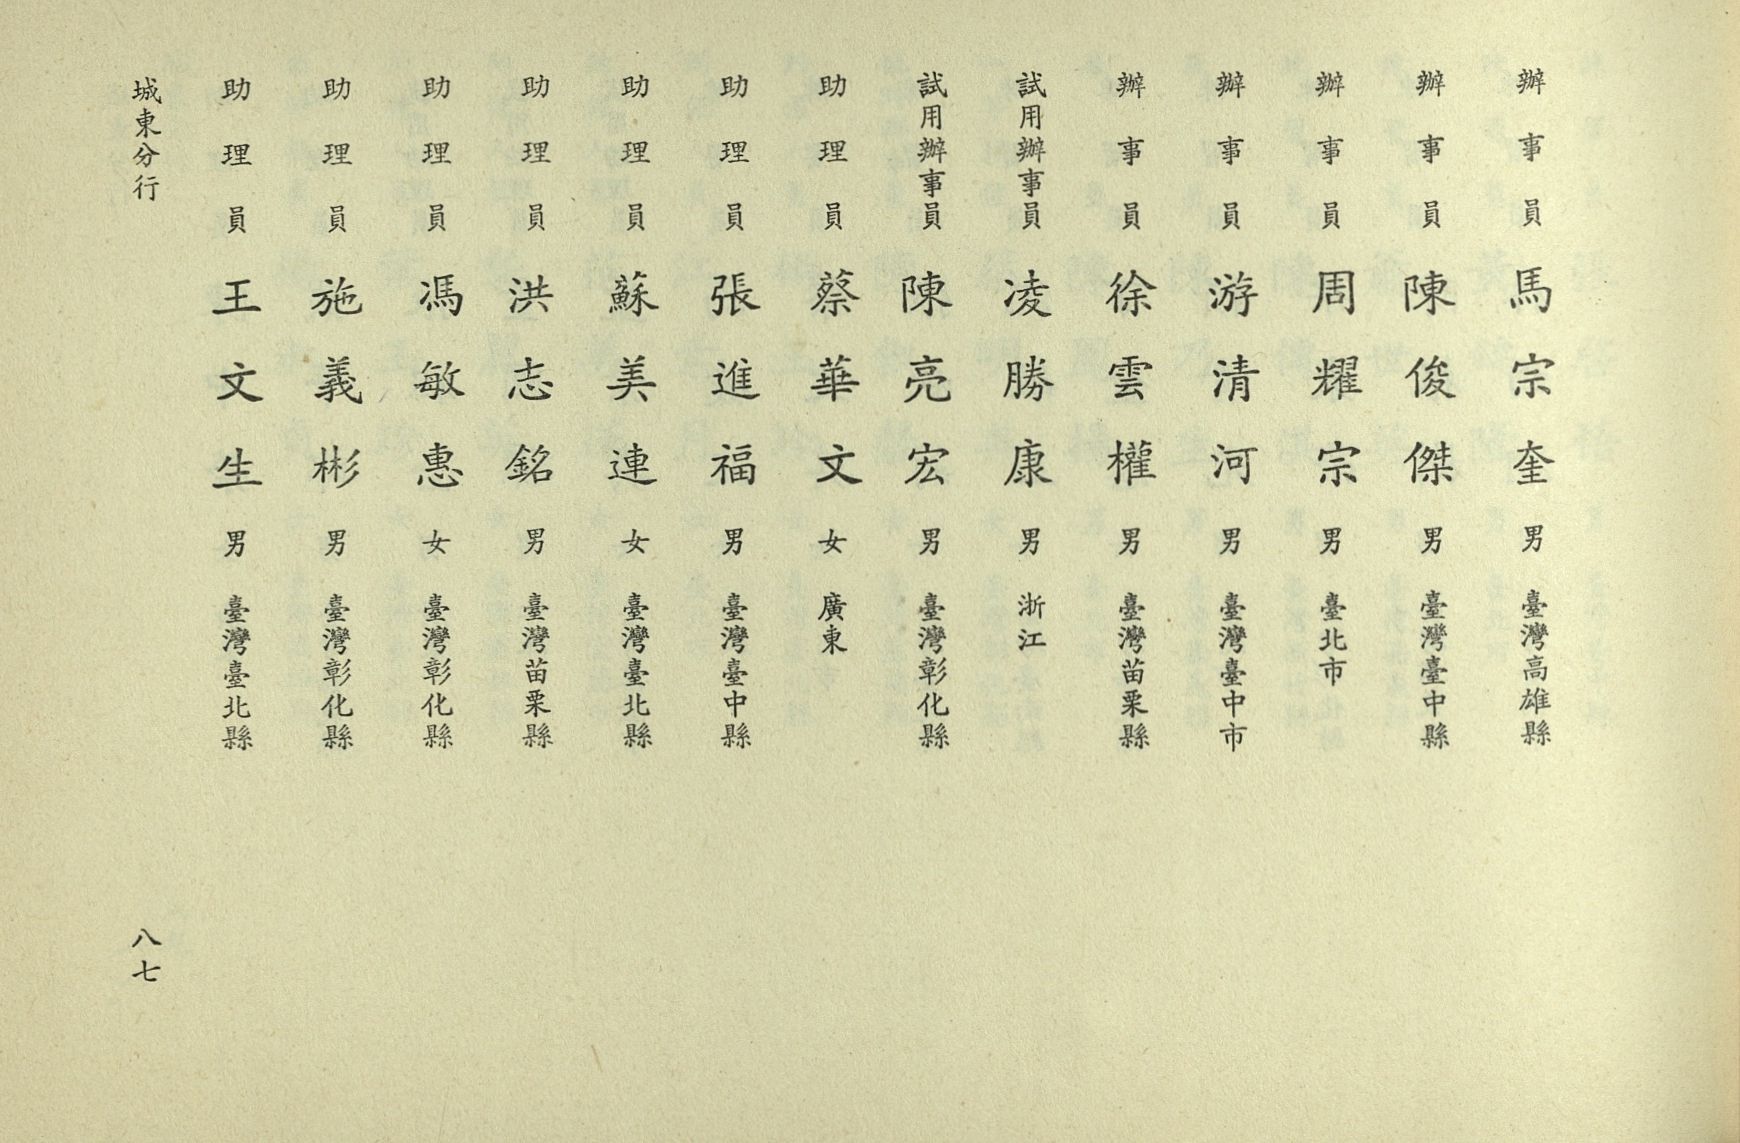 辦事員 馬宗奎 男 臺灣高雄縣
辦事員 陳俊傑 男 臺灣臺中縣
辦事員 周耀宗 男 臺北市
辦事員 游清河 男 臺灣臺中市
辦事員 徐雲權 男 臺灣苗栗縣
試用辦事員 凌勝康 男 浙江
試用辦事員 陳亮宏 男 臺灣彰化縣
助理員 蔡華文 女 廣東
助理員 張進福 男 臺灣臺中縣
助理員 蘇美連 女 臺灣臺北縣
助理員 洪志銘 男 臺灣苗栗縣
助理員 馮敏惠 女 臺灣彰化縣
助理員 施義彬 男 臺灣彰化縣
助理員 王文生 男 臺灣臺北縣
城東分行
八七